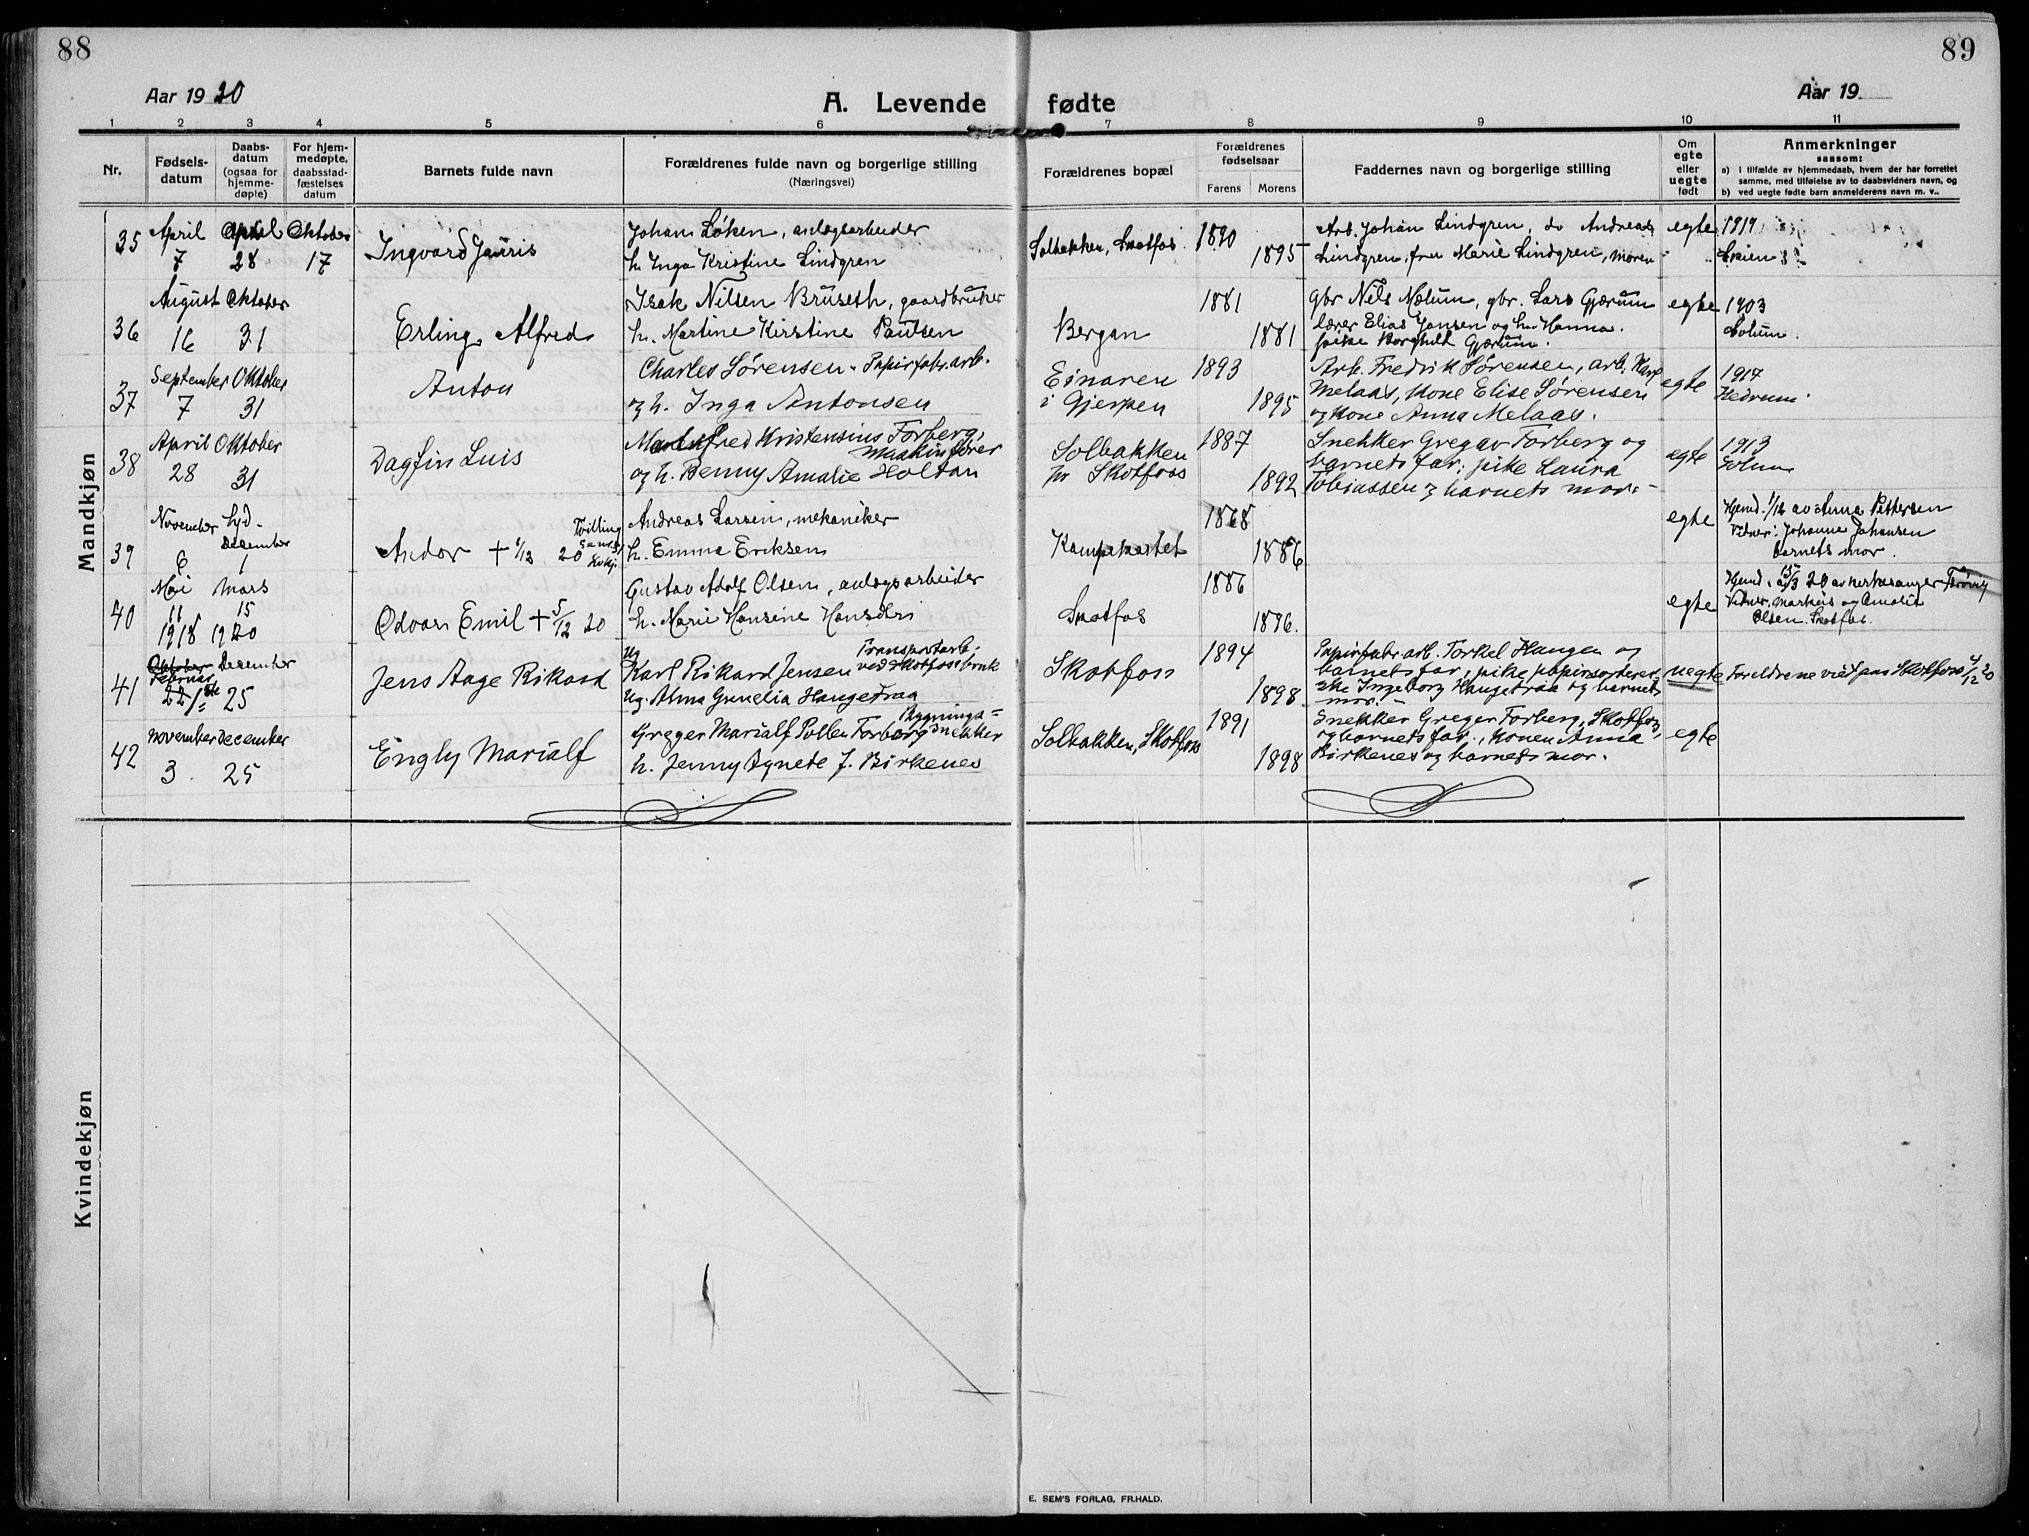 88
89
Aar 1920
A. Levende fødte
Aar 19
1 2 3 4 5 6 7 8 9 10 11
Nr.
Fødsels-
datum
Daabs-
datum
(ogsaa for
hjemme-
døpte)
For hjem-
medøpte,
daabsstad-
fæstelses
datum
Barnets fulde navn
Forældrenes fulde navn og borgerlige stilling
(Næringsvei)
Forældrenes bopæl
Forældrenes
fødselsaar
Farens Morens
Faddernes navn og borgerlige stilling
Om
egte
eller
uegte
født
Anmerkninger
saasom:
a) i tilfælde av hjemmedaab, hvem der har forrettet
samme, med tilføielse av to daabsvidners navn, og
b) ved uegte fødte barn anmelderens navn m. v..
Mandkjøn
35 April 7 April 28 Oktober 17
Ingvard Jauris
Johan Løken, anlægsarbeider
h. Inga Kristine Lindgren
Solbakken, Skotfos. 1890 1895
Arb. Johan Lindgren, do Andreas
Lindgren, fru Marie Lindgren, moren
egte 1919
Skien
36 August 16 Oktober 31
Erling Alfred
Isak Nilsen Bruseth, gaardbruker
h. Martine Kirstine Paulsen
Bergan 1881 1881
gbr Nels Mælum, gbr. Lars Gjærum
lærer Elias Jansen og h. Hanna.
pike Borghilt Gjærum.
egte 1903
Solum.
37 September 7 Oktober 31
Anton
Charles Sørensen - Papirfabr.arb.
og h. Inga Antonsen
Einaren
i Gjerpen 1893 1895
Arb. Fredrik Sørensen, arb. Karl
Melaas, kone Elise Sørensen
og kone Anna Melaas.
egte 1917
Hedrum.
38 April 28 Oktober 31
Dagfin Luis
Kristensius Forberg,
Maskinfører
og h. Benny Amalie Holtan
Solbakken
pr Skotfoss 1887 1892
Snekker Gregar Forberg og
barnets far; pike Laura
Tobiassen og barnets mor.
egte 1913
Solum
39 November 6 Lyd-
December 1
Andor + 6/12 20 Tvilling
Andreas Larsen, mekaniker
h. Emma Eriksen
Kampehaitet 1868 1886
egte Hjemd. 1/12 av Anna Pettersen
Vidner: Johanne Johansen
Barnets mor.
40 Mai 11 1918 Mars 15 1920
Odvar Emil + 5/12 20
Gustav Adolf Olsen, anlægsarbeider
h. Marie Hansine Hansdtr
Skotfos 1886 1896.
egte Hjemd. 15/3 20 av kirkesanger Farøvig
Vidner. Markus og Amalie
Olsen. Skotfos.
41 Oktober
Februar 22 December 25
Jens Aage Rikard
Ug
Karl Rikard Jensen Transportarb.
ved Skotfoss bruk
Ug. Alma Gunelia Haugedrag
Skotfoss 1894 1898
Papirfabr arb. Torkel Haugen og
barnets far, pike papirsorterer-
ske Ingeborg Haugedrak og barnets
mor.
uegte Foreldrene viet paa Skotfoss 4/12 20
42 November 3. December 25
Engly Marialf
Greger Marialf Pollen Forberg Bygnings=
snekker
h. Jenny Agnete J. Birkenes
Solbakken, Skotfoss 1891 1898
Snekker Greger Forberg, Skotfoss,
og barnets far., konen Anna
Birkenes og barnets mor.
egte
Kvindekjøn
E. SEM'S FORLAG, FR.HALD.